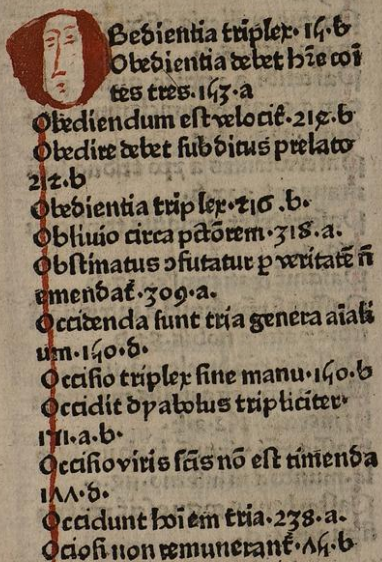 Obedientia triplex. 15.b
Obedientia debet hr̄e cōi
tes tres. 153.a
Obediendum est velocit̄. 212.b
Obedire debet subditus prelato
212.b
Obedientia triplex. 216 .b.
Oblivio circa pctōrem. 318.a.
Obstinatus ɔfutatur ꝑ veritatē n̄
emendat̄. 309.a.
Occidenda sunt tria genera aīali
um. 150.d.
Occisio triplex sine manu. 150.b
Occidit dyabolus tripliciter.
171.a.b.
Occisio viris sc̄is nō est timenda
144.d.
Occidunt hoīem tria. 238.a.
Ociosi non remunerant̄. 45.b